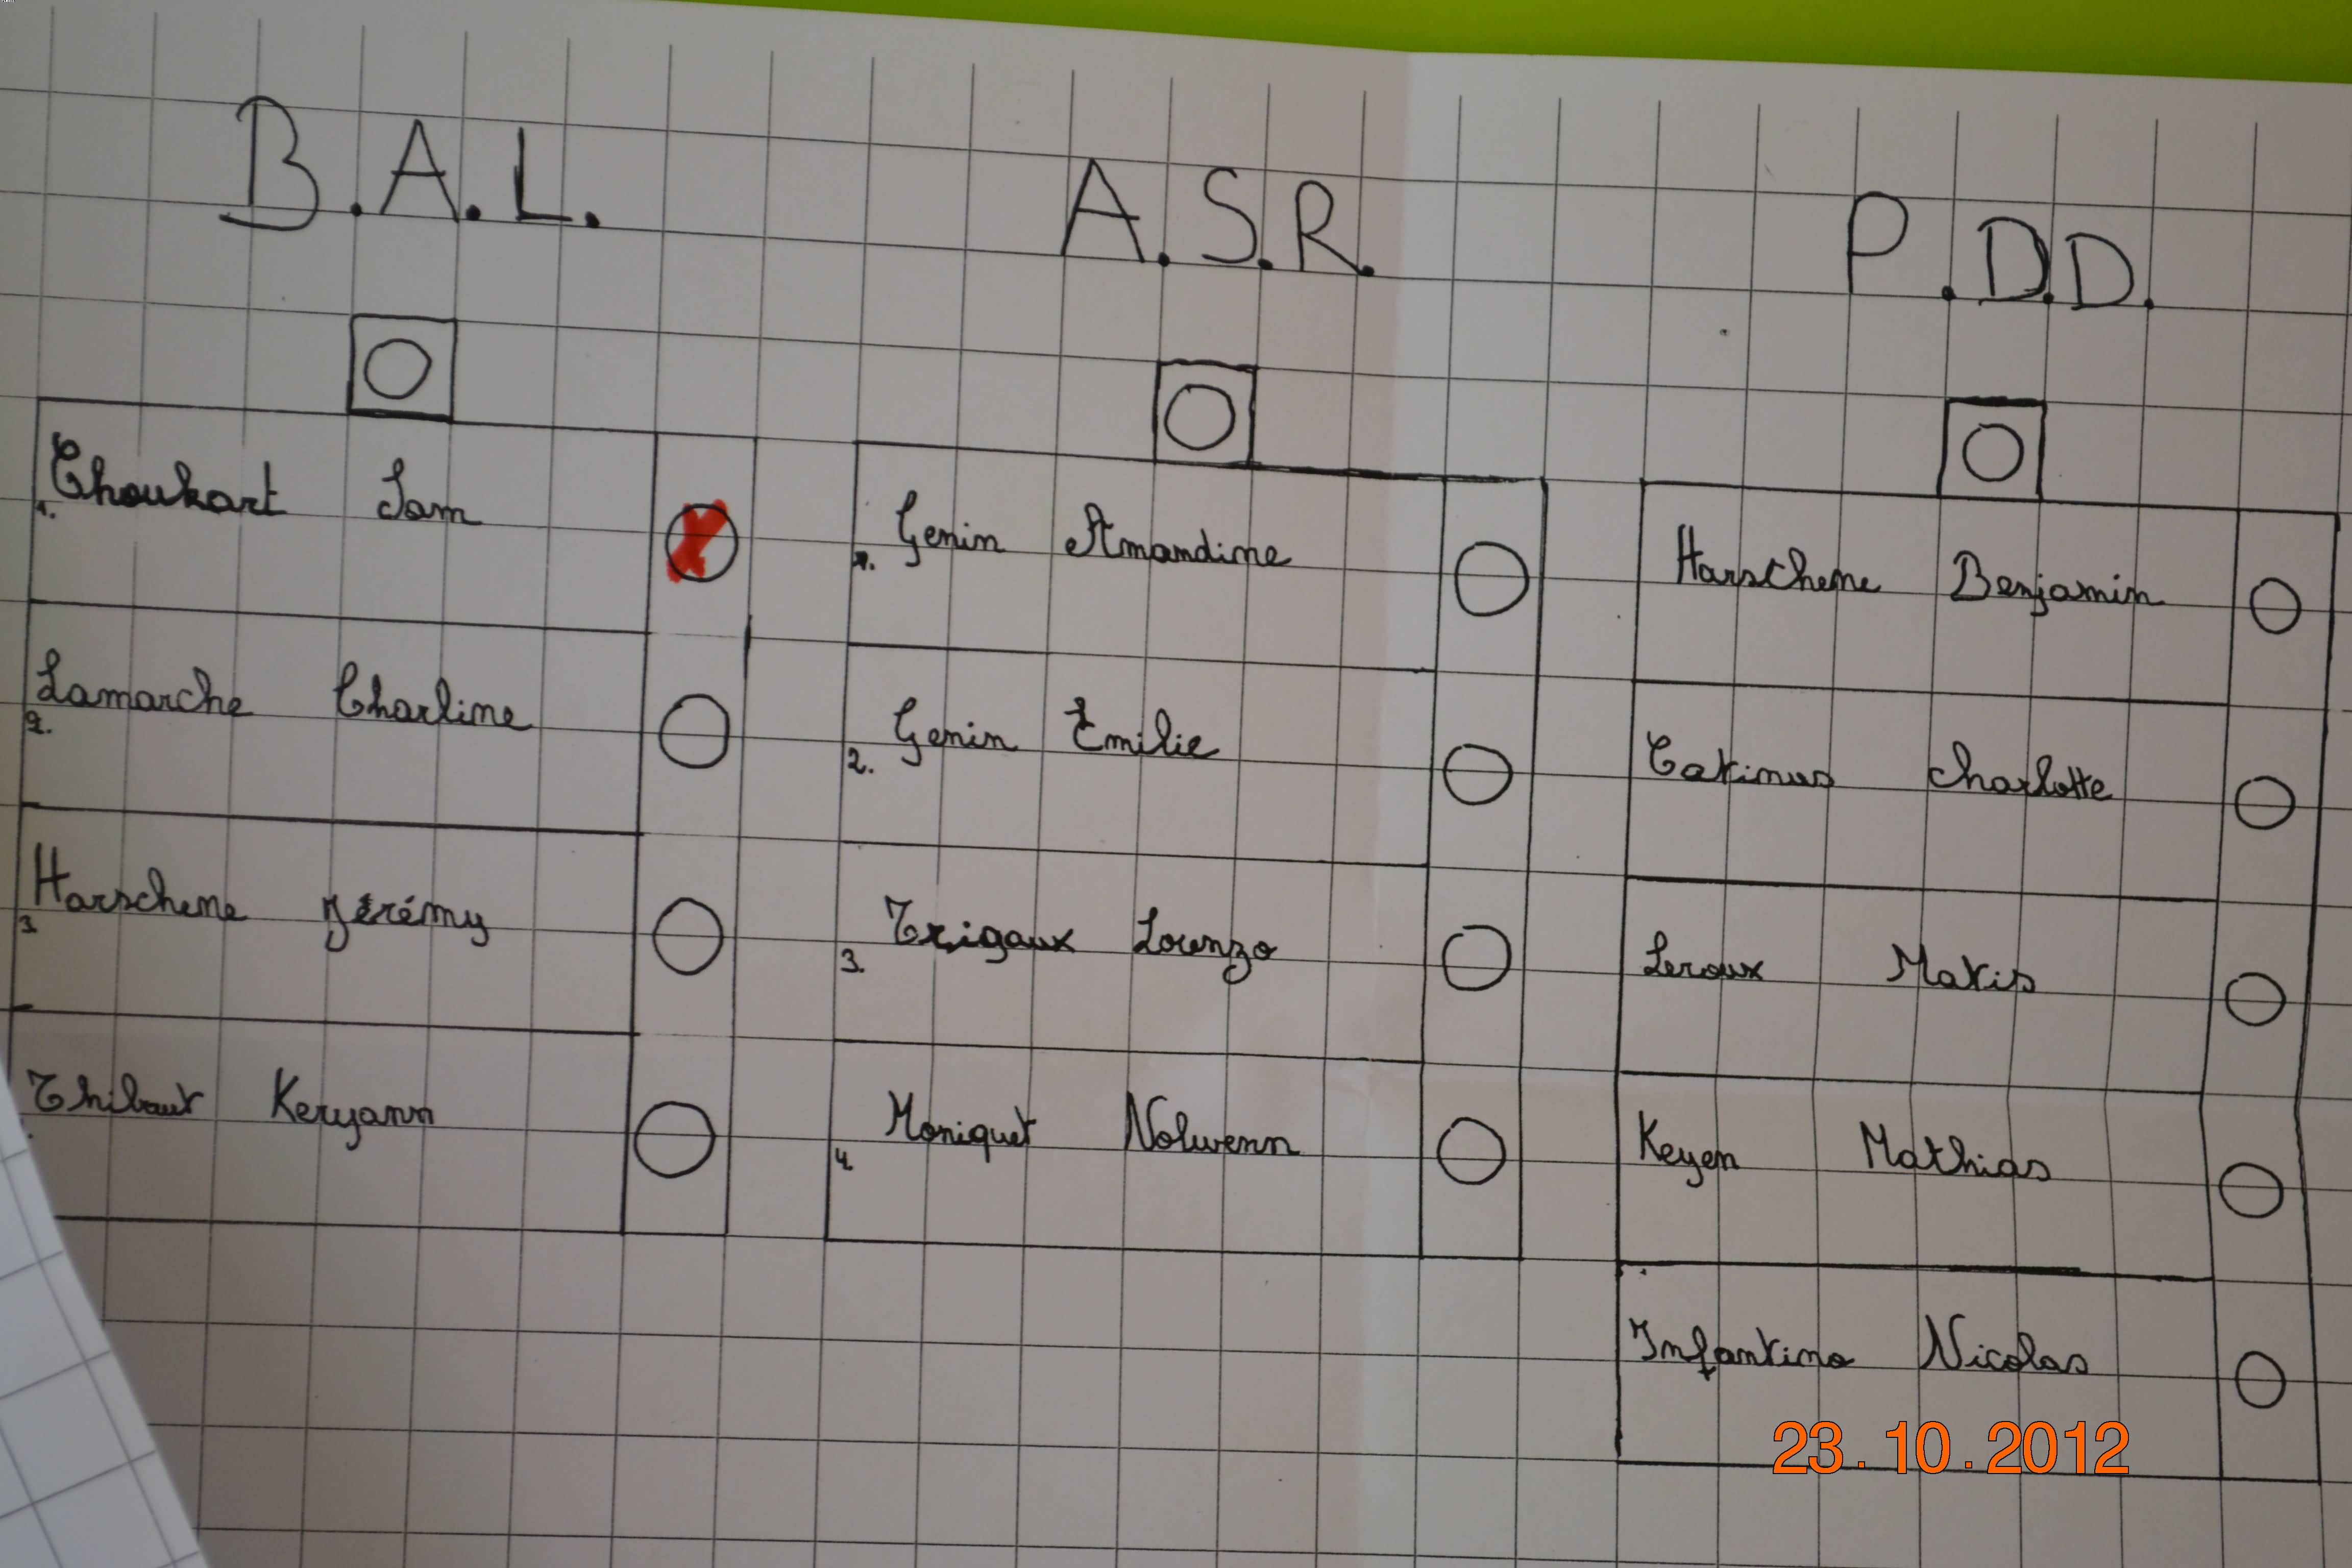 B.A.L.
1. Choukart Sam
2. Lamarche Charline
3 Harschene Jérémy
Thibaut Keryann
A.S.R.
1. Genin Amandine
2. Genin Emilie
3. Trigaux Lorenzo
4. Moniquet Nolwenn
P.D.D.
Harschene Benjamin
Catinus Charlotte
Leroux Matis
Keyen Mathias
Infantino Nicolas
23.10.2012